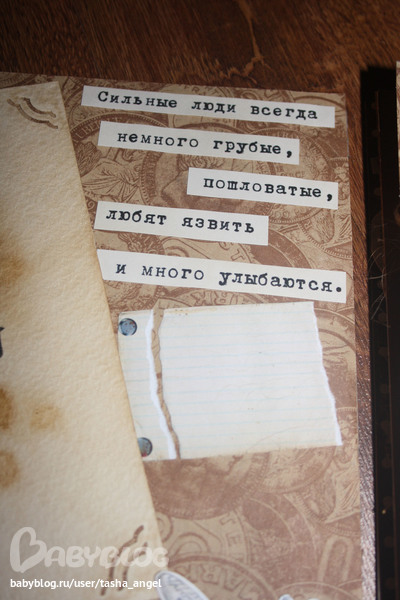 Сильные люди всегда
немного грубые,
пошловатые,
любят язвить
и много улыбаются.
BABYBLOG
babyblog.ru/user/tasha_angel